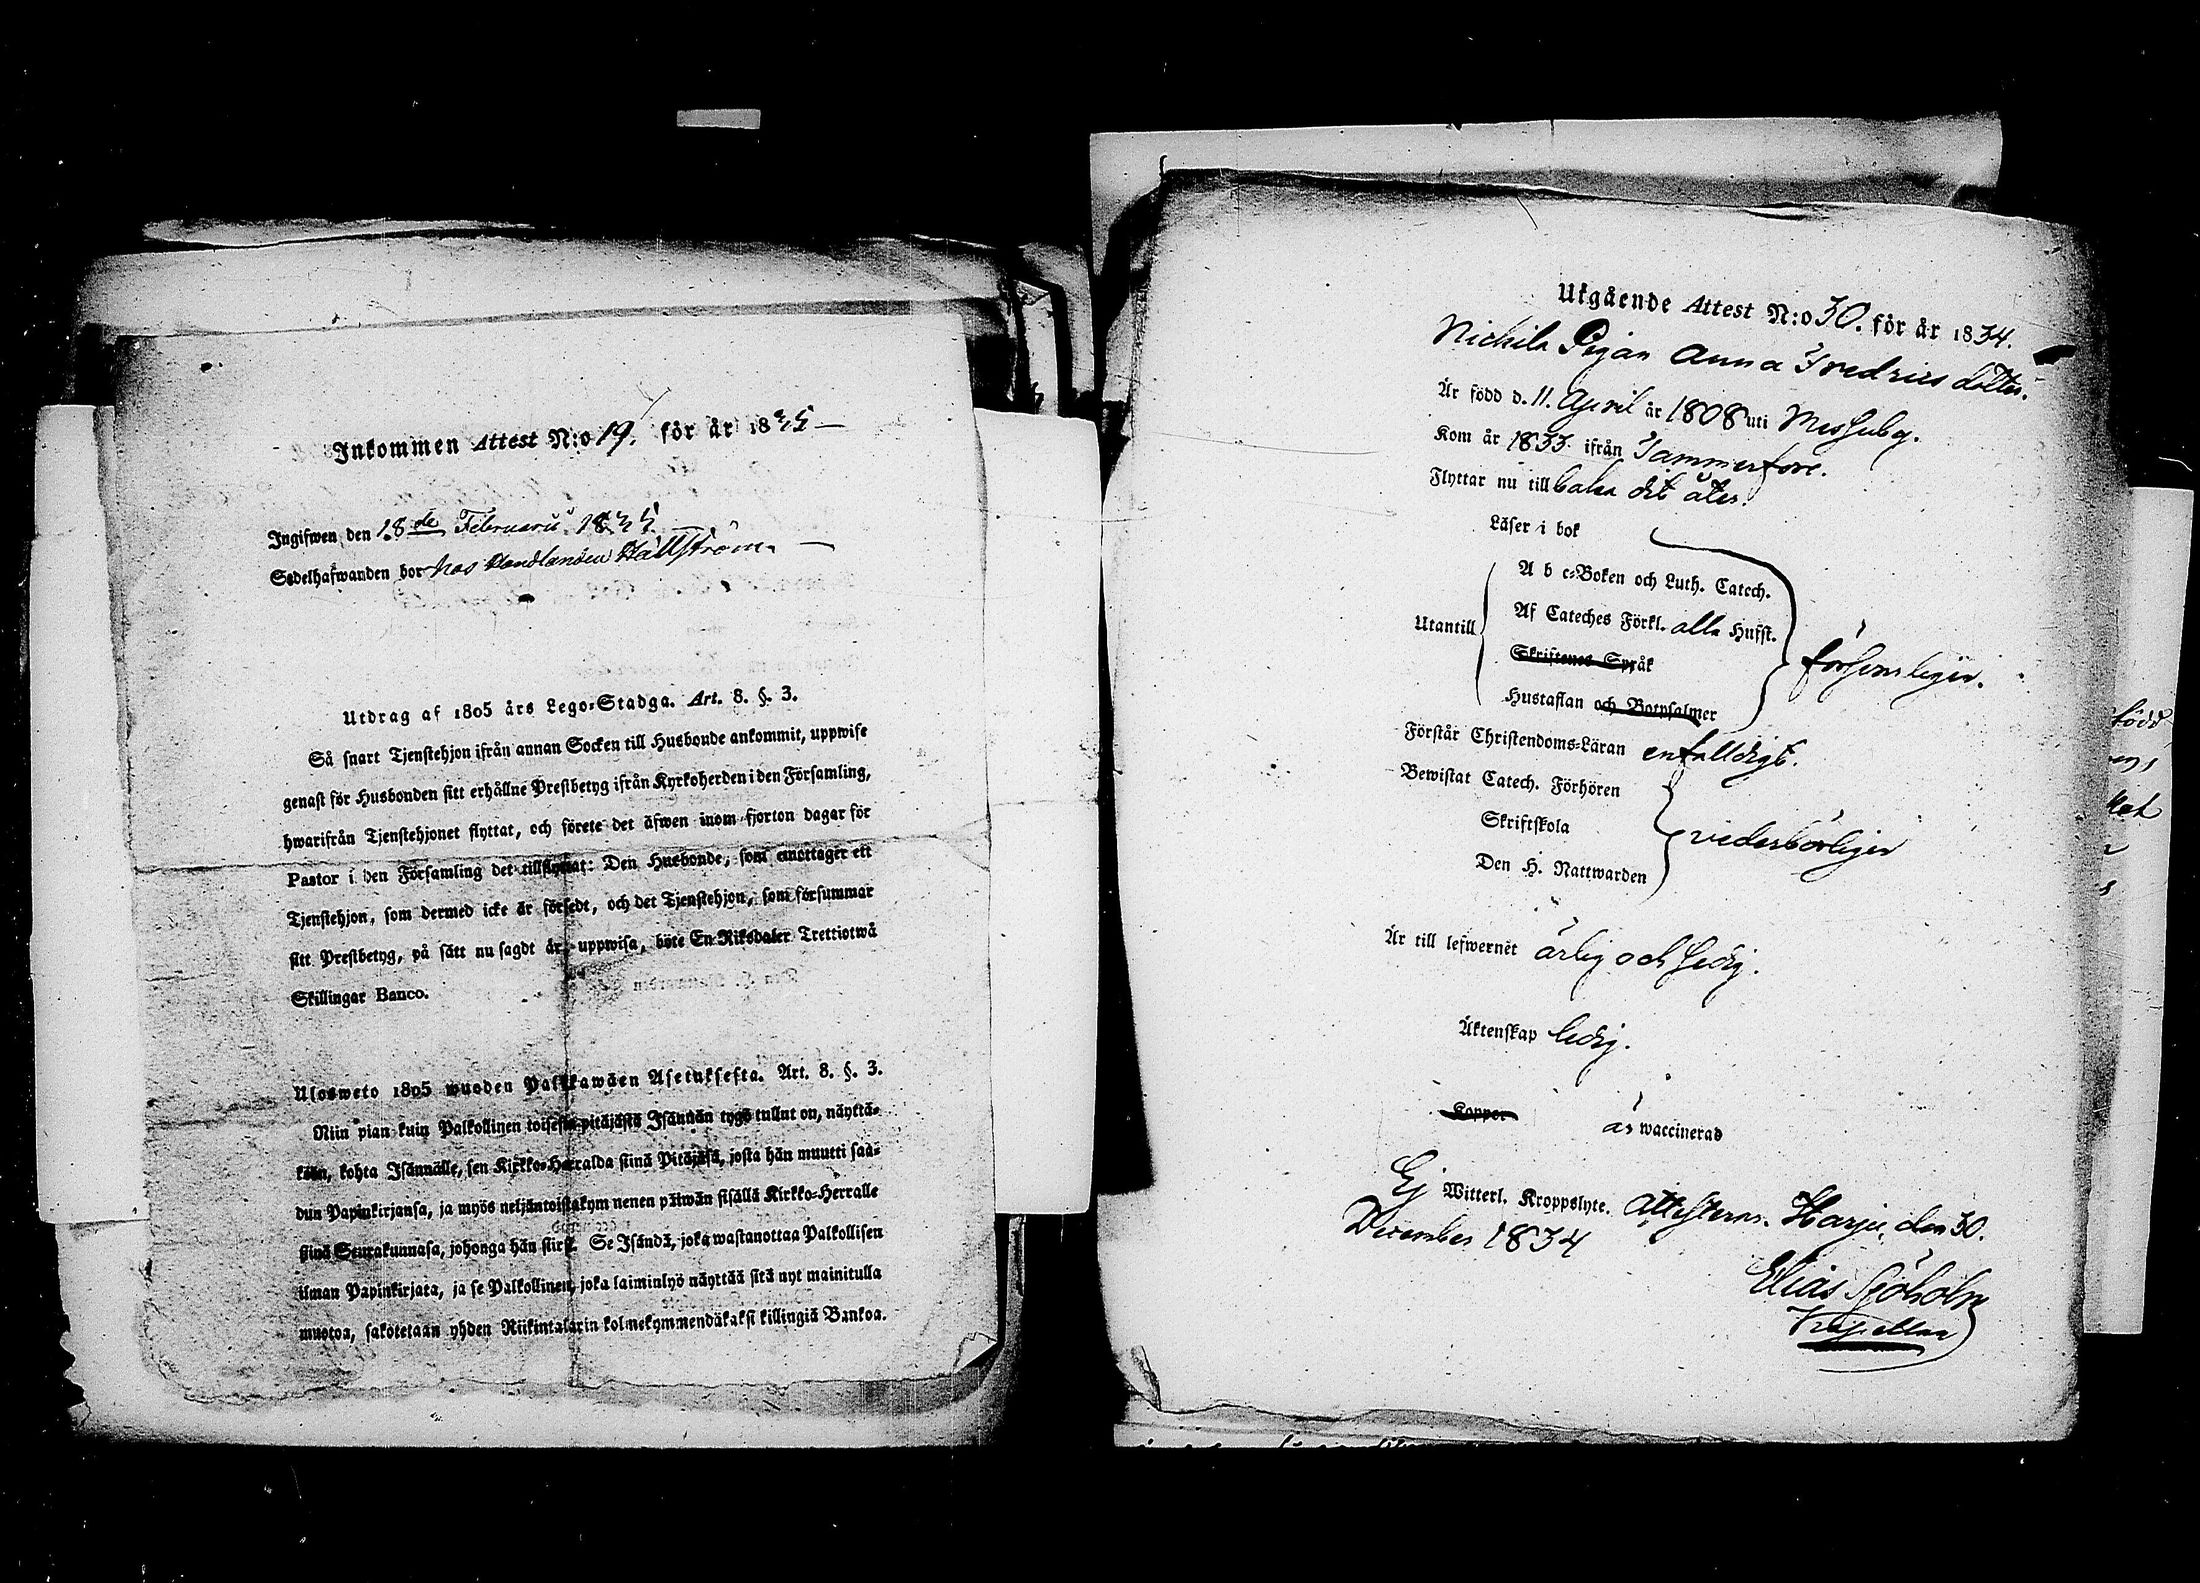 Inkommen Attest N:o 19. för år 1835
Ingifwen den 18de Februarii 1835
Sedelhafwanden bor hos Handlanden Hällström.
Utdrag af 1805 års Lego-Stadga. Art. 8. §. 3.
Så snart Tjenstehjon ifrån annan Socken till Husbonde ankommit, uppwise
genast för Husbonden sitt erhållne Prestbetyg ifrån Kyrkoherden i den Församling,
hwarifrån Tjenstehjonet flyttat, och förete det äfwen inom fjorton dagar för
Pastor i den Församling det tillflyttat: Den Husbonde, som emottager ett
Tjenstehjon, som dermed icke är försedt, och det Tjenstehjon, som försummar
sitt Prestbetyg, på sätt nu sagdt är, uppwisa, böte En Riksdaler Trettiotwå
Skillingar Banco.
Ulosweto 1805 wuoden Palkkawäen Asetuksesta. Art. 8. §. 3.
Niin pian kuin Palkollinen toisesta pitäjästä Isännän tygö tullut on, näyttä-
köön, kohta Isännälle, sen Kirkko-Herralda siinä Pitäjäsä, josta hän muutti saa-
dun Papinkirjansa, ja myös neljäntoistakymmenen päiwän sisällä Kirkko-Herralle
siinä Seurakunnasa, johonga hän siirsi. Se Isändä, joka wastanottaa Palkollisen
ilman Papinkirjata, ja se Palkollinen, joka laiminlyö näyttää sitä nyt mainitulla
muotoa, sakotetaan yhden Riikintalarin kolmekymmendäkaksi killingiä Bankoa.
Utgående Attest N:o 30. för år 1834.
Nickilä Pigan Anna Fredrics dotter.
Är född d. 11. April år 1808 uti Messuby.
Kom år 1833 ifrån Tammerfors.
Flyttar nu till baka dit åter.
Läser i bok
A b c-Boken och Luth. Catech.
Utantill Af Cateches Förkl. alla Hufst.
Skriftenes Språk
försvarligen.
Hustaflan och Botpsalmer
Förstår Christendoms-Läran enfalldigt.
Bewistat Catech. Förhören
Skriftskola
vederbörligen
Den H. Nattwarden
Är till lefwernet ärlig och sedig.
Äktenskap ledig.
Koppor är waccinerad
Ej Witterl. Kroppslyte. Attesteras. Harju, den 30.
December 1834
Elias Sjöholm
Kapellan
född